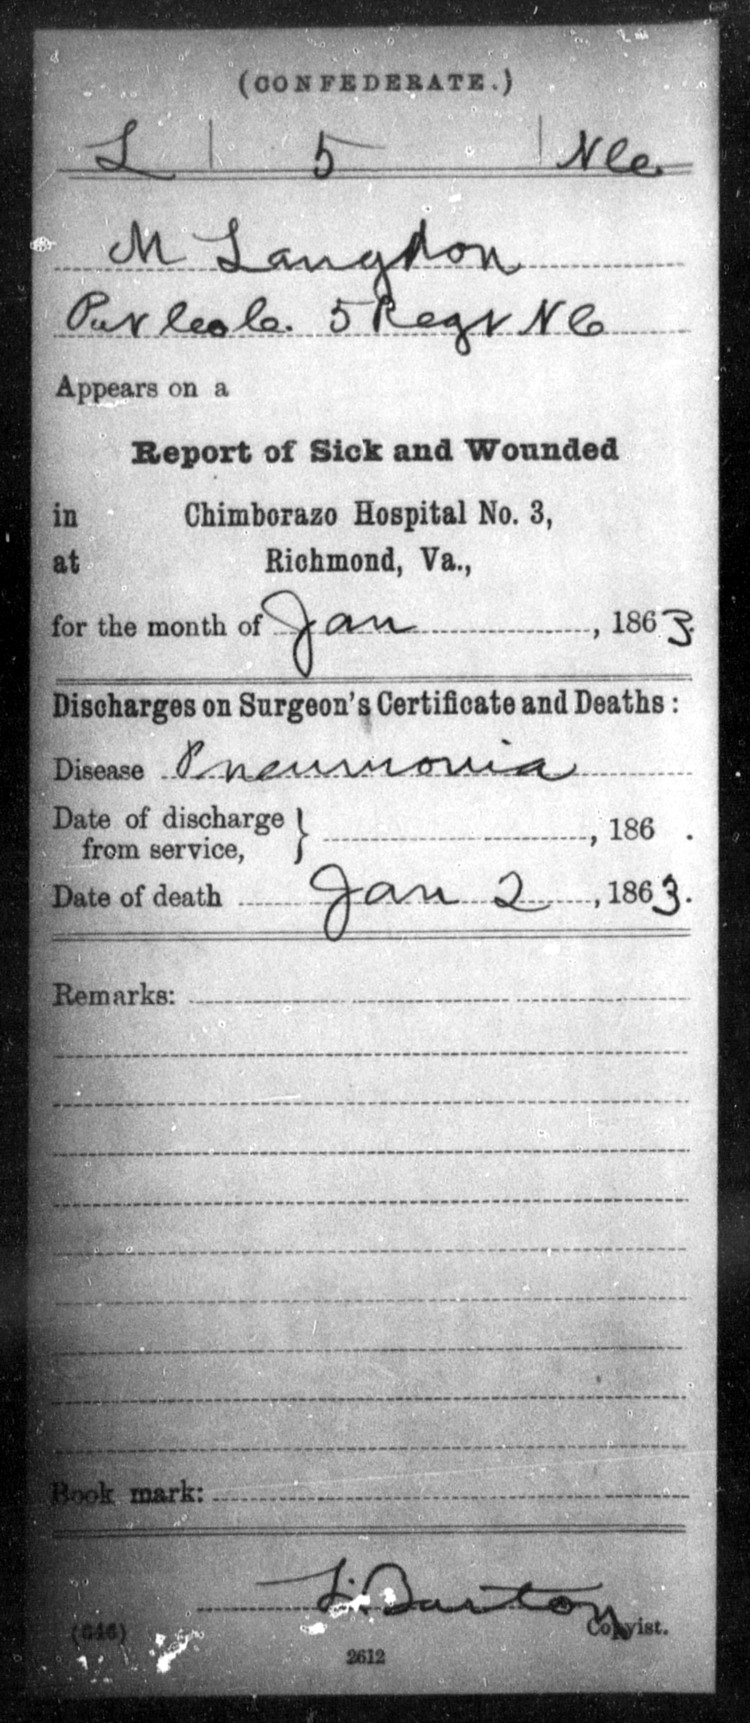 (CONFEDERATE.)
L | 5 | N C
M Langdon
Pvt Co. 5 Regt N C
Appears on a
Report of Sick and Wounded
in Chimborazo Hospital No. 3,
at Richmond, Va.,
for the month of Jan, 1863.
Discharges on Surgeon's Certificate and Deaths:
Disease Pneumonia
Date of discharge } , 186 .
from service,
Date of death Jan 2, 1863.
Remarks:
Book mark:
Barton
Copyist.
(646)
2612